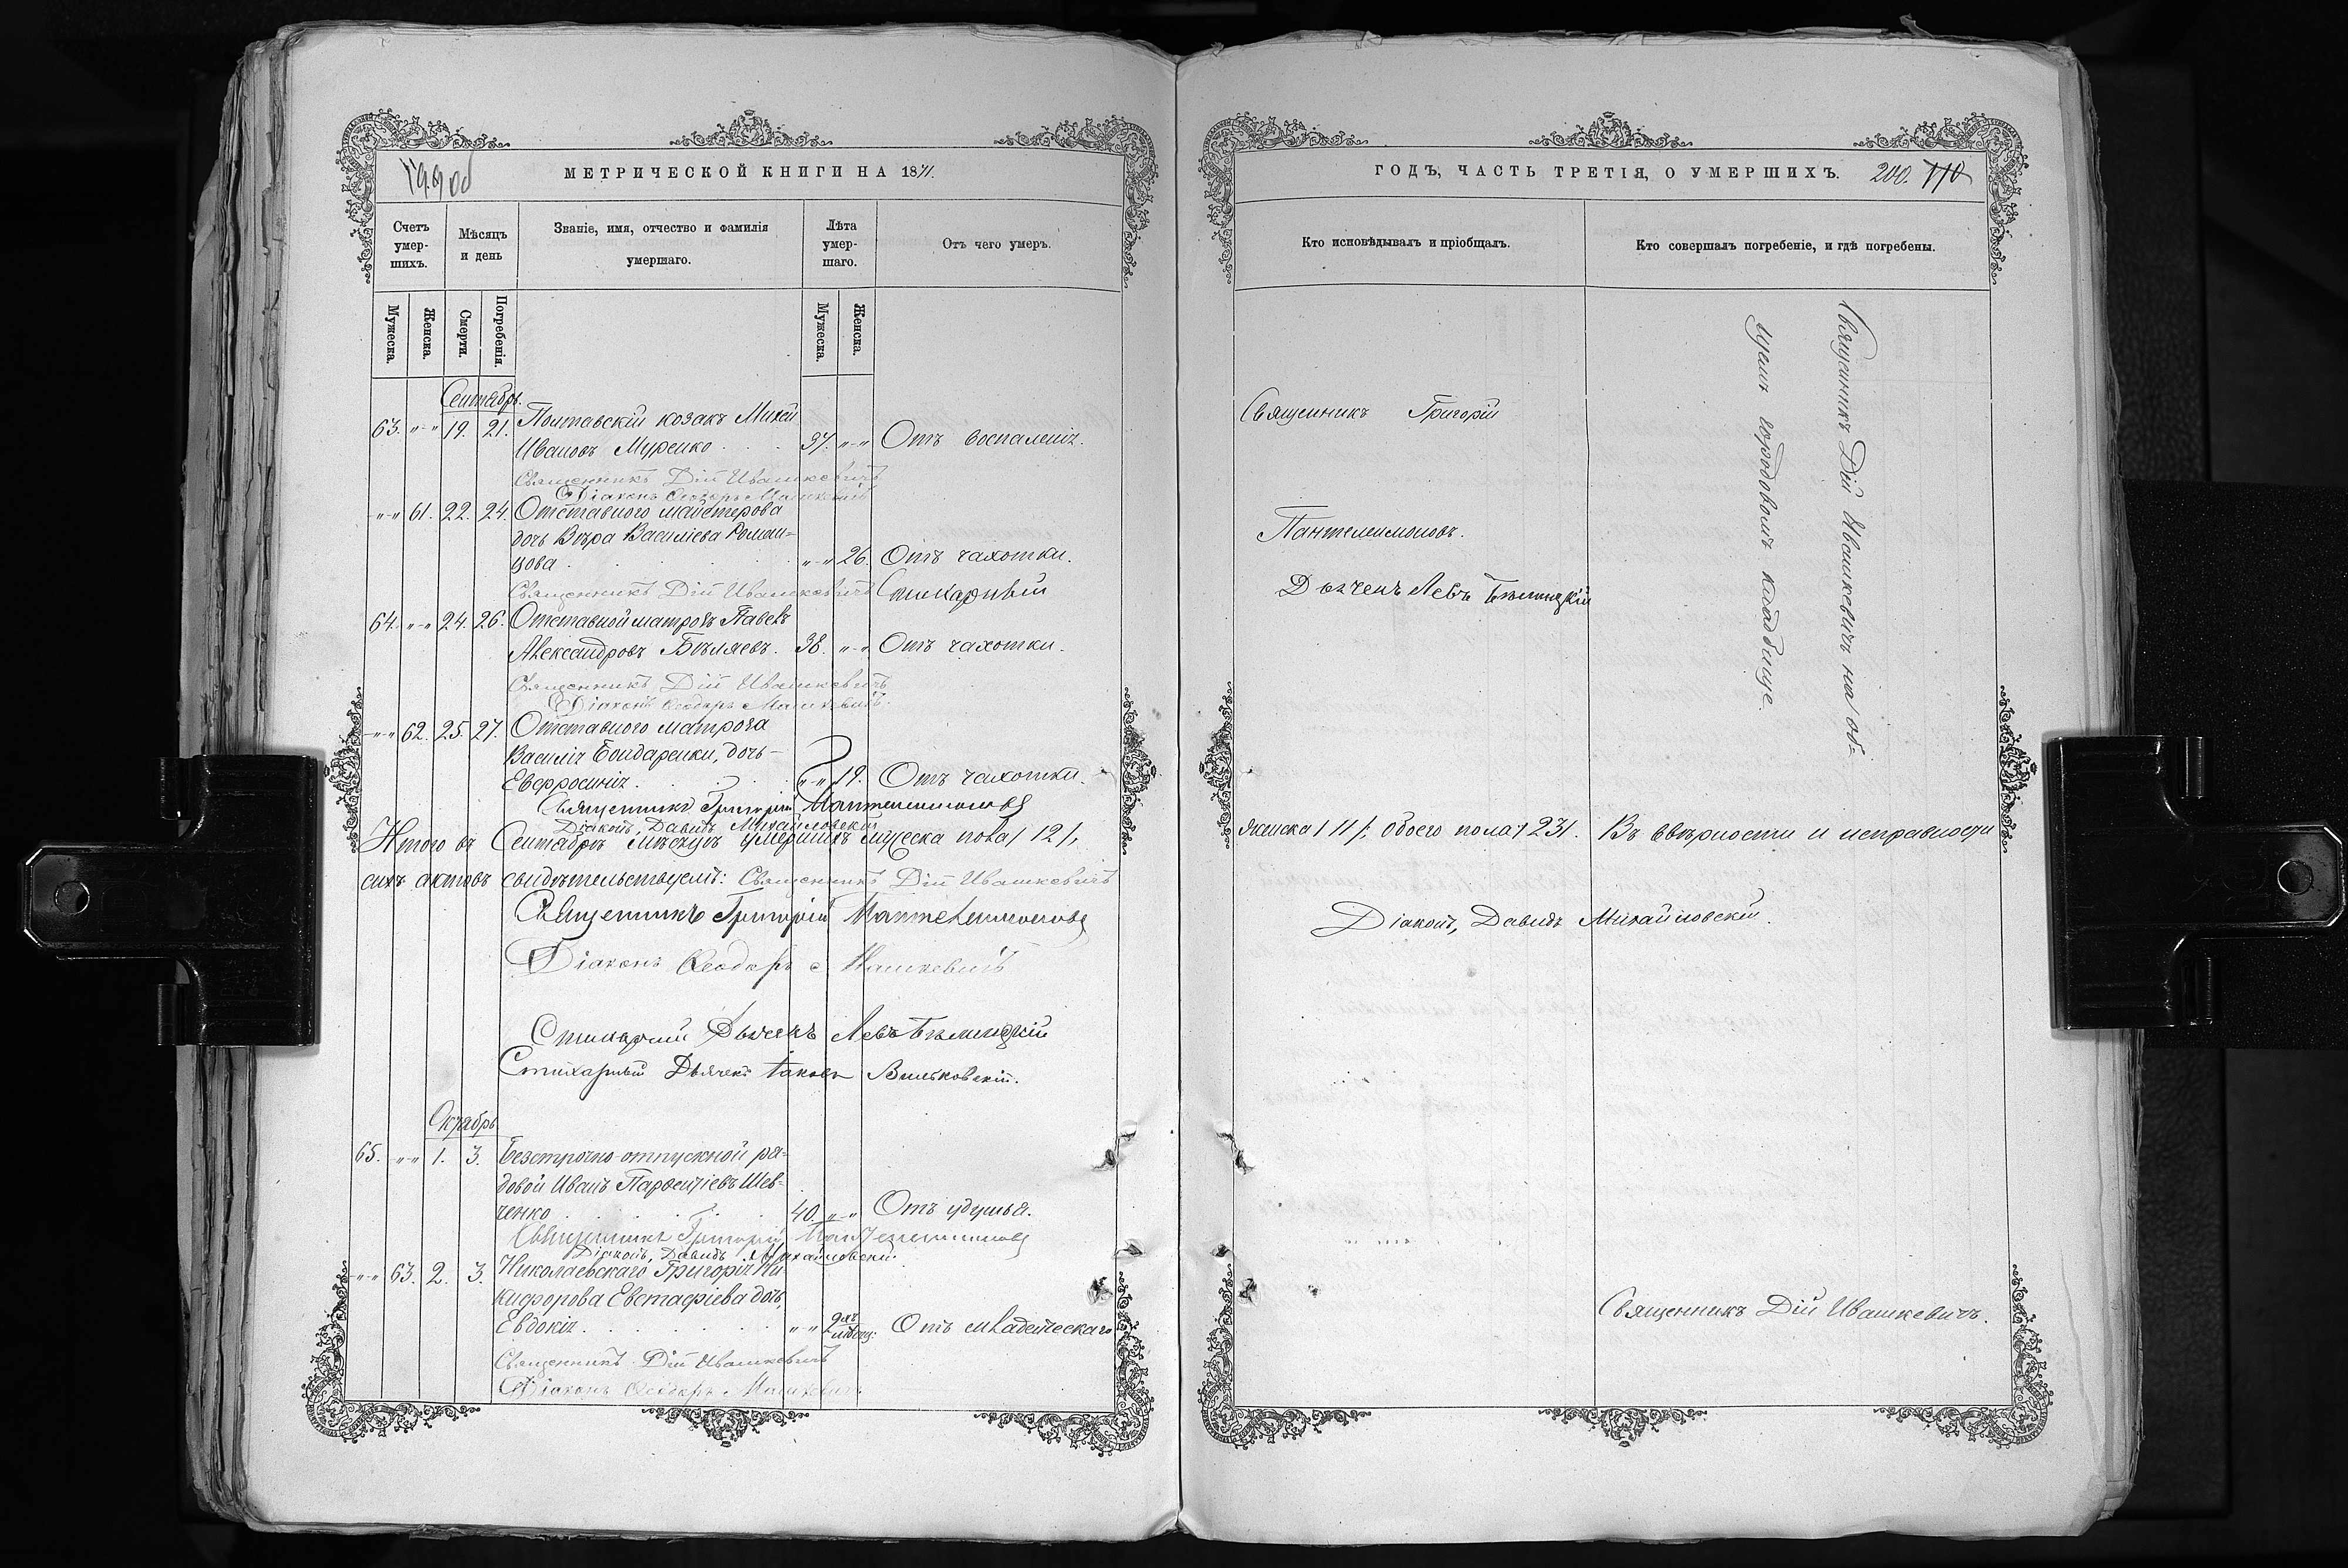 199 об
МЕТРИЧЕСКОЙ КНИГИ НА 1871.
Счетъ умер-шихъ.
Мѣсяцъ и день
Званіе, имя, отчество и фамилія умершаго.
Лѣта умер-шаго.
Отъ чего умеръ.
Мужеска.
Женска.
Смерти.
Погребенія.
Мужеска.
Женска.
Сентябрь.
63. "-" 19. 21. Полтавскій козакъ Михей
Ивановъ Муренко . . 37. "-" Отъ воспаленія.
Священникъ Дій Ивашкевичъ
Діаконъ Ѳеодоръ Машкевичъ
"-" 61. 22. 24. Отставнаго майстерова
дочь Вѣра Васильева Роман-
цова . . . . "-" 26. Отъ чахотки.
Священникъ Дій Ивашкевичъ Стихарный
64. "-" 24. 26. Отставной матрозъ Павелъ
Александровъ Бѣляевъ. 38. "-" Отъ чахотки.
Священникъ Дій Ивашкевичъ
Діаконъ Ѳеодоръ Машкевичъ.
"-" 62. 25. 27. Отставного матроза
Василія Бондаренки, дочь-
Евфросинія . . . "-" 19. Отъ чахотки.
Священникъ Григорій Пантелеимоновъ
Діаконъ, Давидъ Михайловскій
Итого въ Сентябрѣ мѣсяцѣ умершихъ мужеска пола / 12 /,
сихъ актовъ свидѣтельствуемъ: Священникъ Дій Ивашкевичъ
Священникъ Григорій Пантелеимоновъ
Діаконъ Ѳеодоръ Машкевичъ
Стихарный Дьячекъ Левъ Бѣлиндкій
Стихарный Дьячекъ Іаковъ Вильковскій.
Октябрь
65. "-" 1. 3. Безсрочно-отпускной ря-
довой Иванъ Парѳентіевъ Шев-
ченко . . . . 40. "-" Отъ удушья.
Священникъ Григорій Пантелеимоновъ
Діаконъ, Давидъ Михайловскій.
"-" 63. 2. 3. Николаевскаго Григорія Ни-
кифорова Евстафіева дочь,
Евдокія . . . . "-" 2хъ мѣсяц: Отъ младенческаго
Священникъ Дій Ивашкевичъ
Діаконъ Ѳеодоръ Машкевичъ
ГОДЪ, ЧАСТЬ ТРЕТІЯ, О УМЕРШИХЪ.
200. 110
Кто исповѣдывалъ и пріобщалъ.
Кто совершалъ погребеніе, и гдѣ погребены.
Священникъ Григорій
Пантелеимоновъ.
Дьячекъ Левъ Бѣлиндкій
Священникъ Дій Ивашкевичъ на об-
щемъ городовомъ кладбище.
женска / 11 /: обоего пола / 23 /. Въ вѣрности и исправности
Діаконъ, Давидъ Михайловскій.
Священникъ Дій Ивашкевичъ.